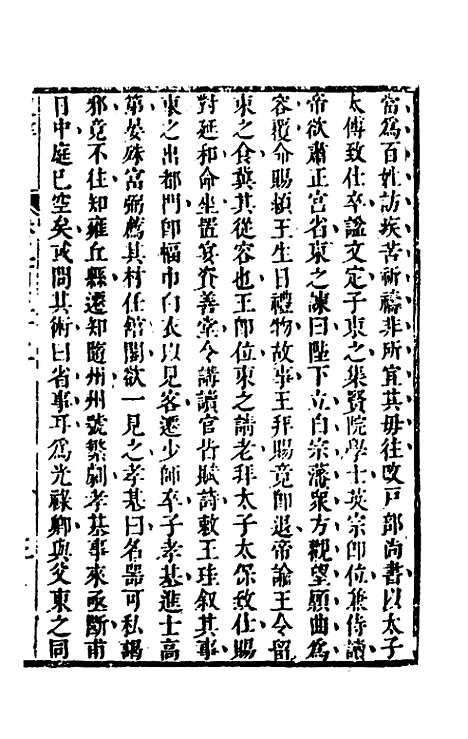 當爲百姓訪疾苦祈禱非所宜其毋往改戸部尚書以太子
太傅致仕卒諡文定子東之集賢院學士英宗即位兼侍讀
帝欲肅正宮省東之諫曰陛下立自宗藩衆方觀望願曲爲
容覆命賜頴王生日禮物故事王拜賜竟即退帝諭王令留
東之食冀其從容也王即位東之請老拜太子太保致仕賜
對延和命坐置宴資善堂令講讀官皆賦詩敕王珪叙其事
東之出都門即幅巾白衣以見客遷少師卒子孝基進士高
第晏殊富弼薦其材任館閣欲一見之孝基曰名器可私謁
邪竟不往知雍丘縣遷知隨州州號繁劇孝基事來亟斷甫
日中庭已空矣或問其術曰省事耳爲光祿卿與父東之同